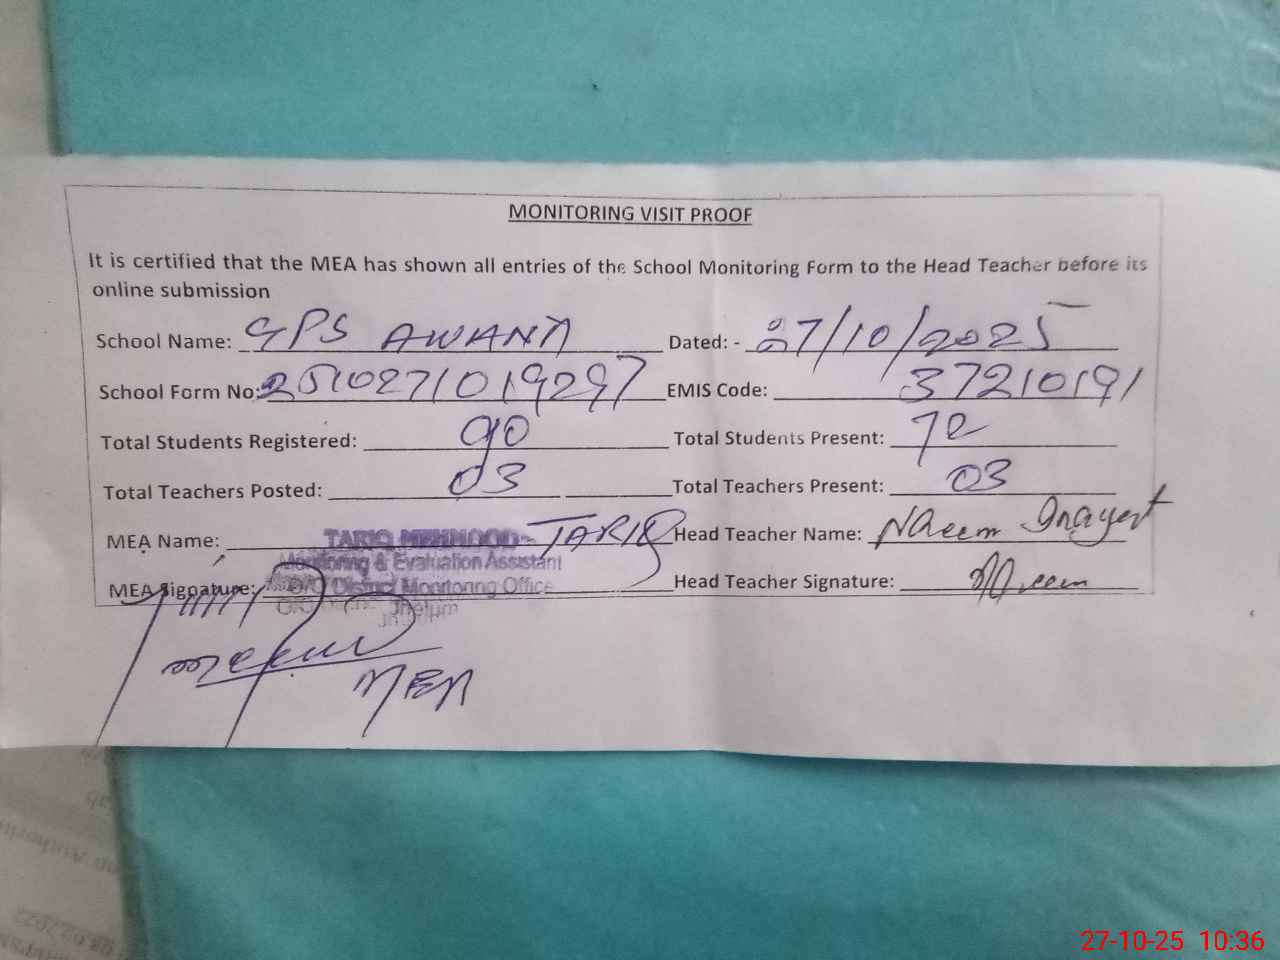 MONITORING VISIT PROOF
It is certified that the MEA has shown all entries of the School Monitoring Form to the Head Teacher before its
online submission
School Name: GPS AWANA Dated: - 27/10/2025
School Form No: 2510271019297 EMIS Code: 37210191
Total Students Registered: 90 Total Students Present: 72
Total Teachers Posted: 03 Total Teachers Present: 03
MEA Name: TARIQ MEHMOOD TARIQ Head Teacher Name: Naeem Inayert
Monitoring & Evaluation Assistant
MEA Signature: District Monitoring Office Head Teacher Signature: Naeem
Jhelum
MEA
27-10-25 10:36